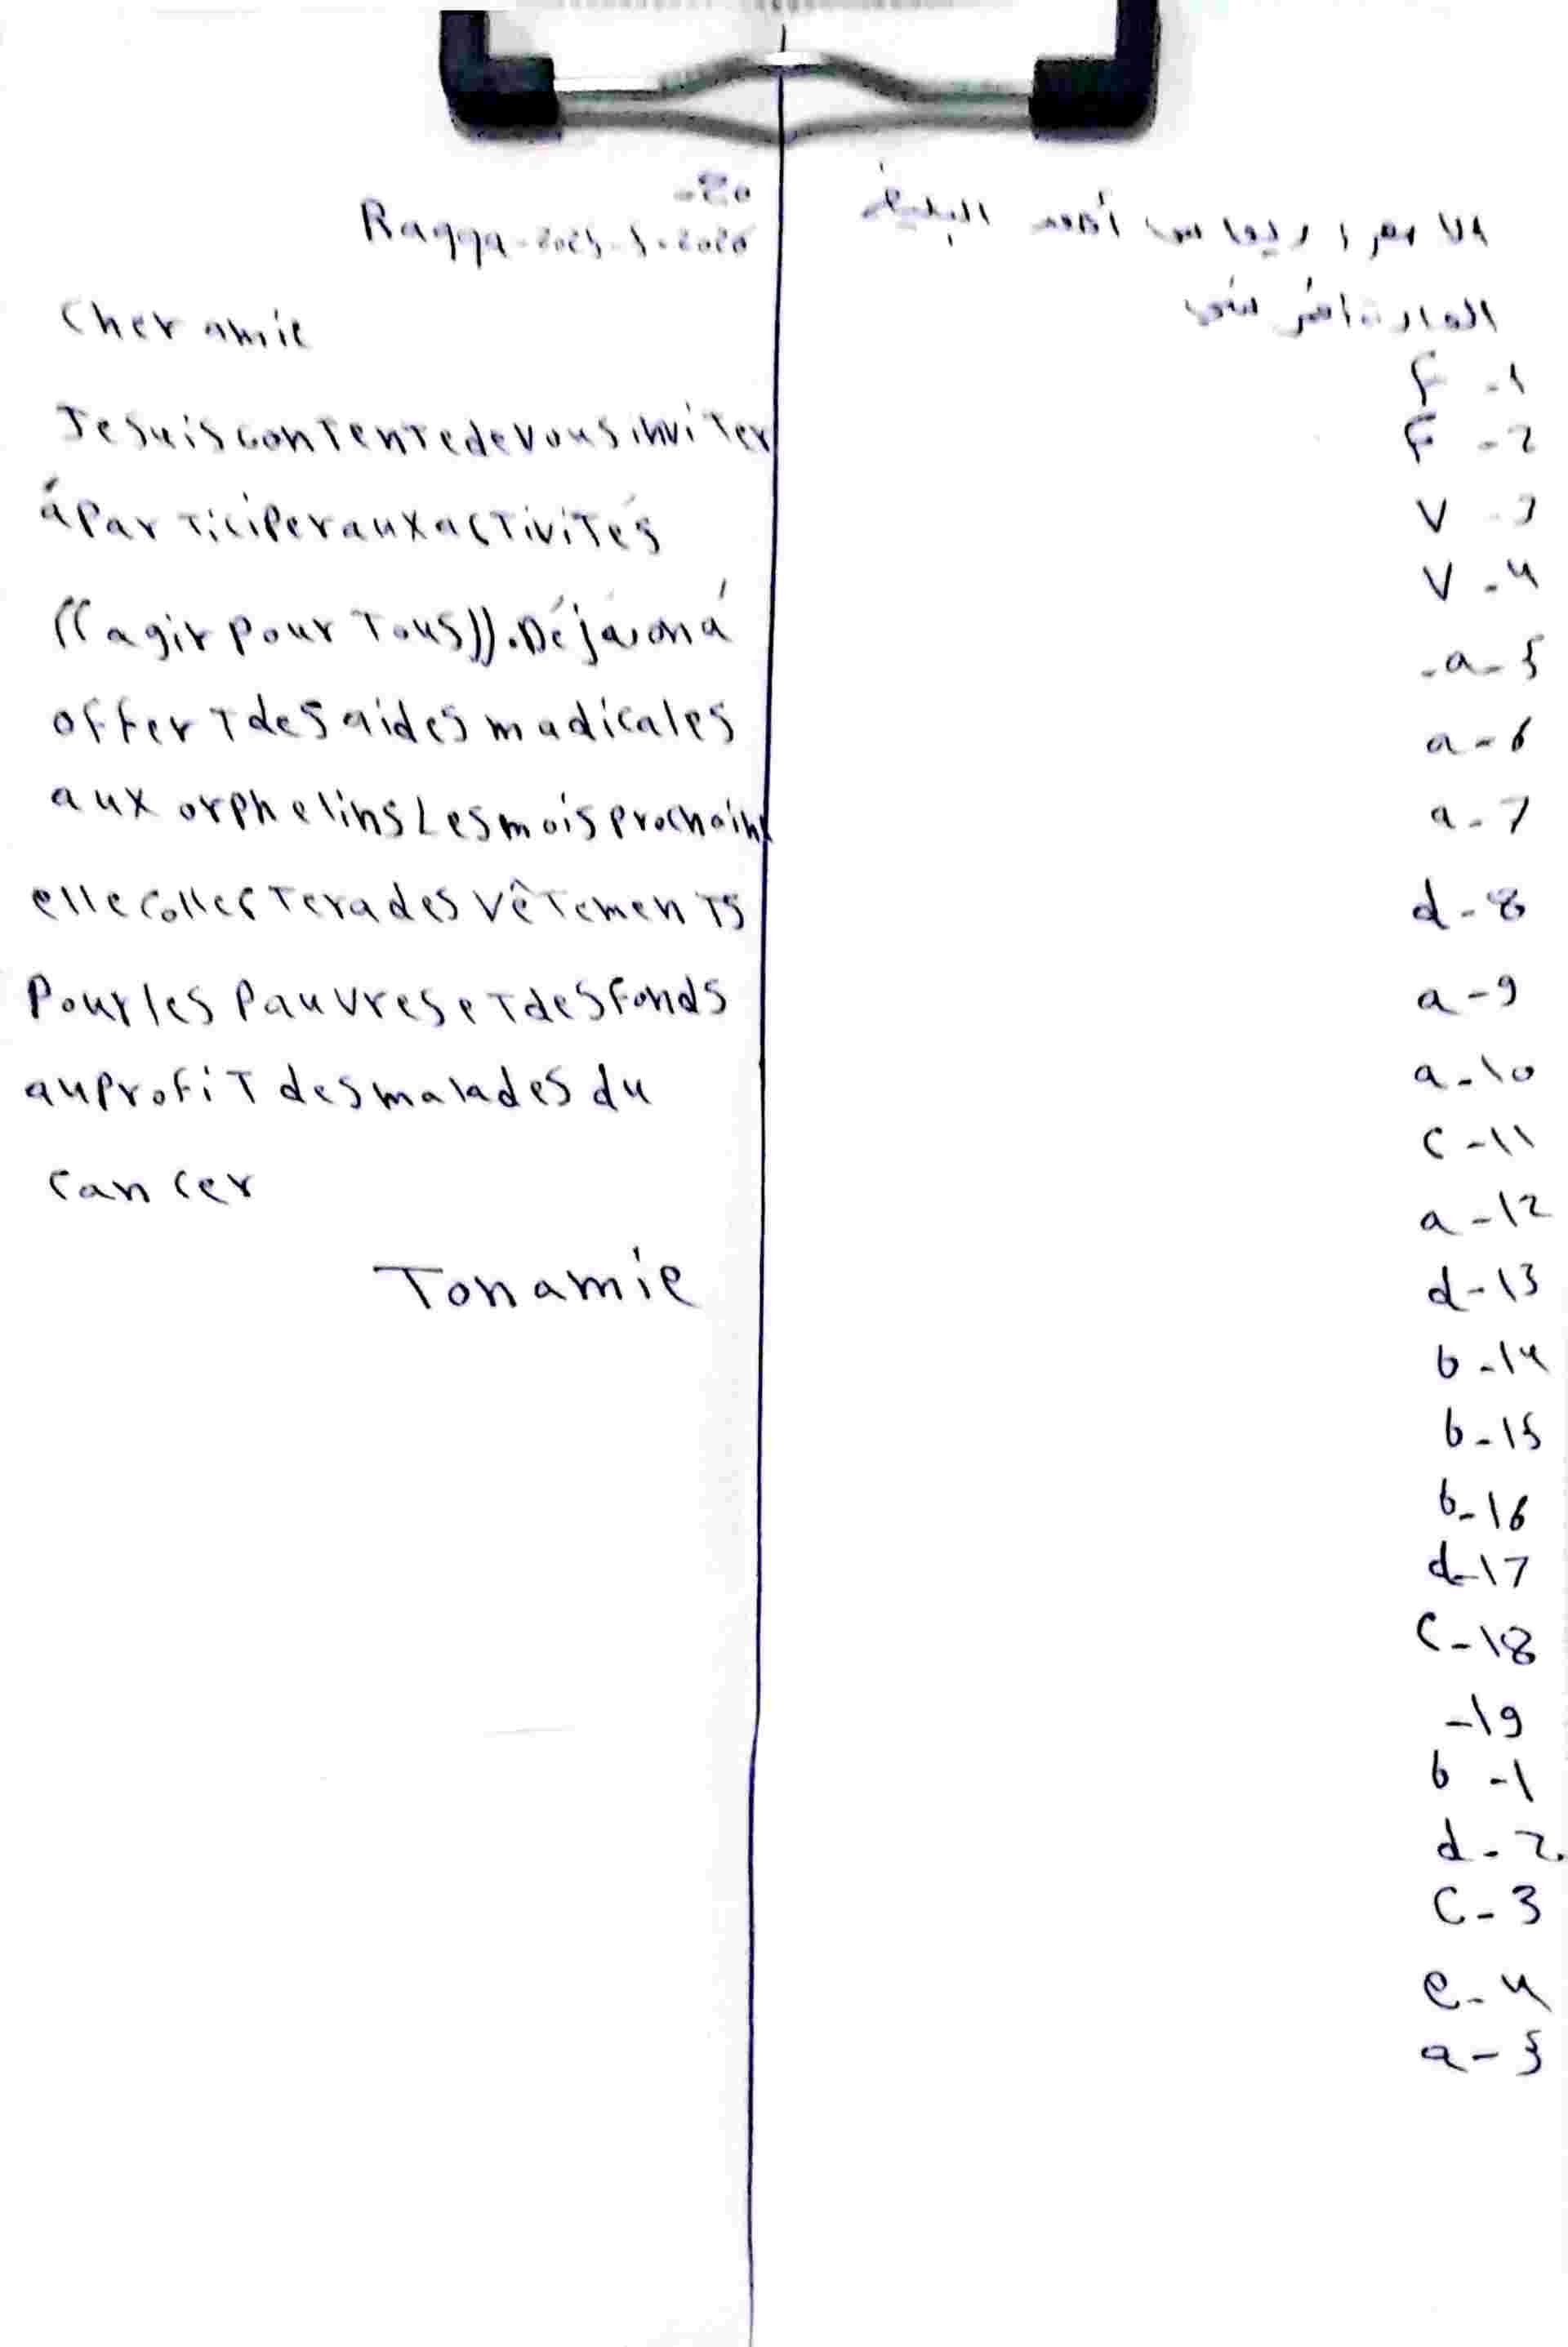 Raqqa
Cher amie
Je suis contente de vous inviter
á participer aux activités
((agir pour Tous)). Déjá on á
offert des aides madicales
aux orphelins Les mois prochains
elle collectera des vêtements
Pour les Pauvres et des fonds
au Profit des malades du
cancer
Ton amie
F -1
F -2
V -3
V -4
-a-5
a-6
a-7
d-8
a-9
a-10
c-11
a-12
d-13
b-14
b-15
b-16
d-17
c-18
-19
b -1
d-2.
c-3
e-4
a-5